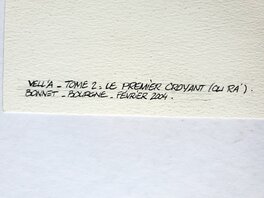 VELL'A _ TOME 2 : LE PREMIER CROYANT (OU RA').
BONNET _ BOURGNE _ FÉVRIER 2004.